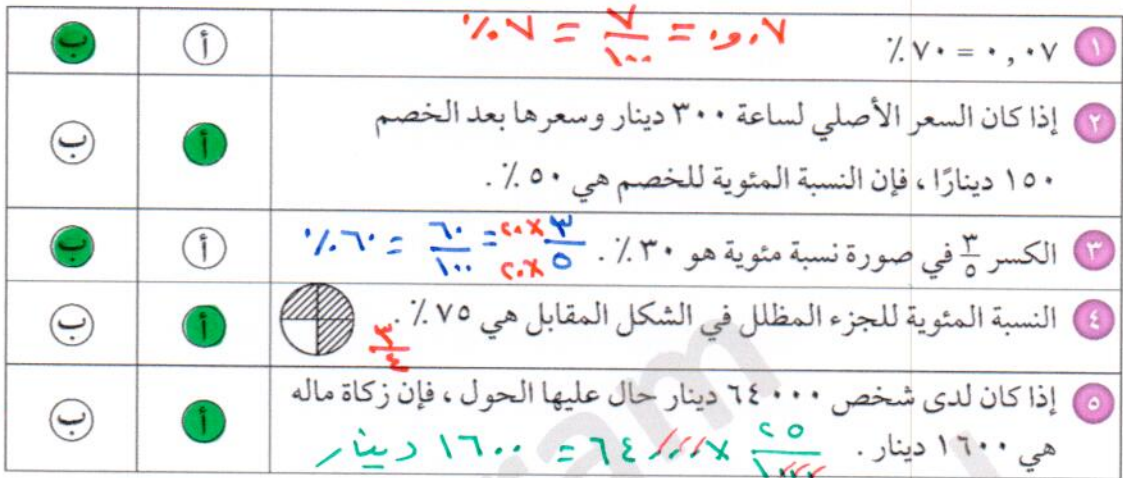 ٪٧ = ٧/١٠٠ = ٠,٠٧
١ ٠,٠٧ = ٧٠٪ أ ب
٢ إذا كان السعر الأصلي لساعة ٣٠٠ دينار وسعرها بعد الخصم
١٥٠ دينارًا ، فإن النسبة المئوية للخصم هي ٥٠٪ . أ ب
٣ الكسر ٣/٥ في صورة نسبة مئوية هو ٣٠٪ . ٣×٢٠/٥×٢٠ = ٦٠/١٠٠ = ٦٠٪ أ ب
٤ النسبة المئوية للجزء المظلل في الشكل المقابل هي ٧٥٪ . أ ب
٣/٤
٥ إذا كان لدى شخص ٦٤٠٠٠ دينار حال عليها الحول ، فإن زكاة ماله
هي ١٦٠٠ دينار . ٢٥/١٠٠٠ × ٦٤٠٠٠ = ١٦٠٠ دينار أ ب